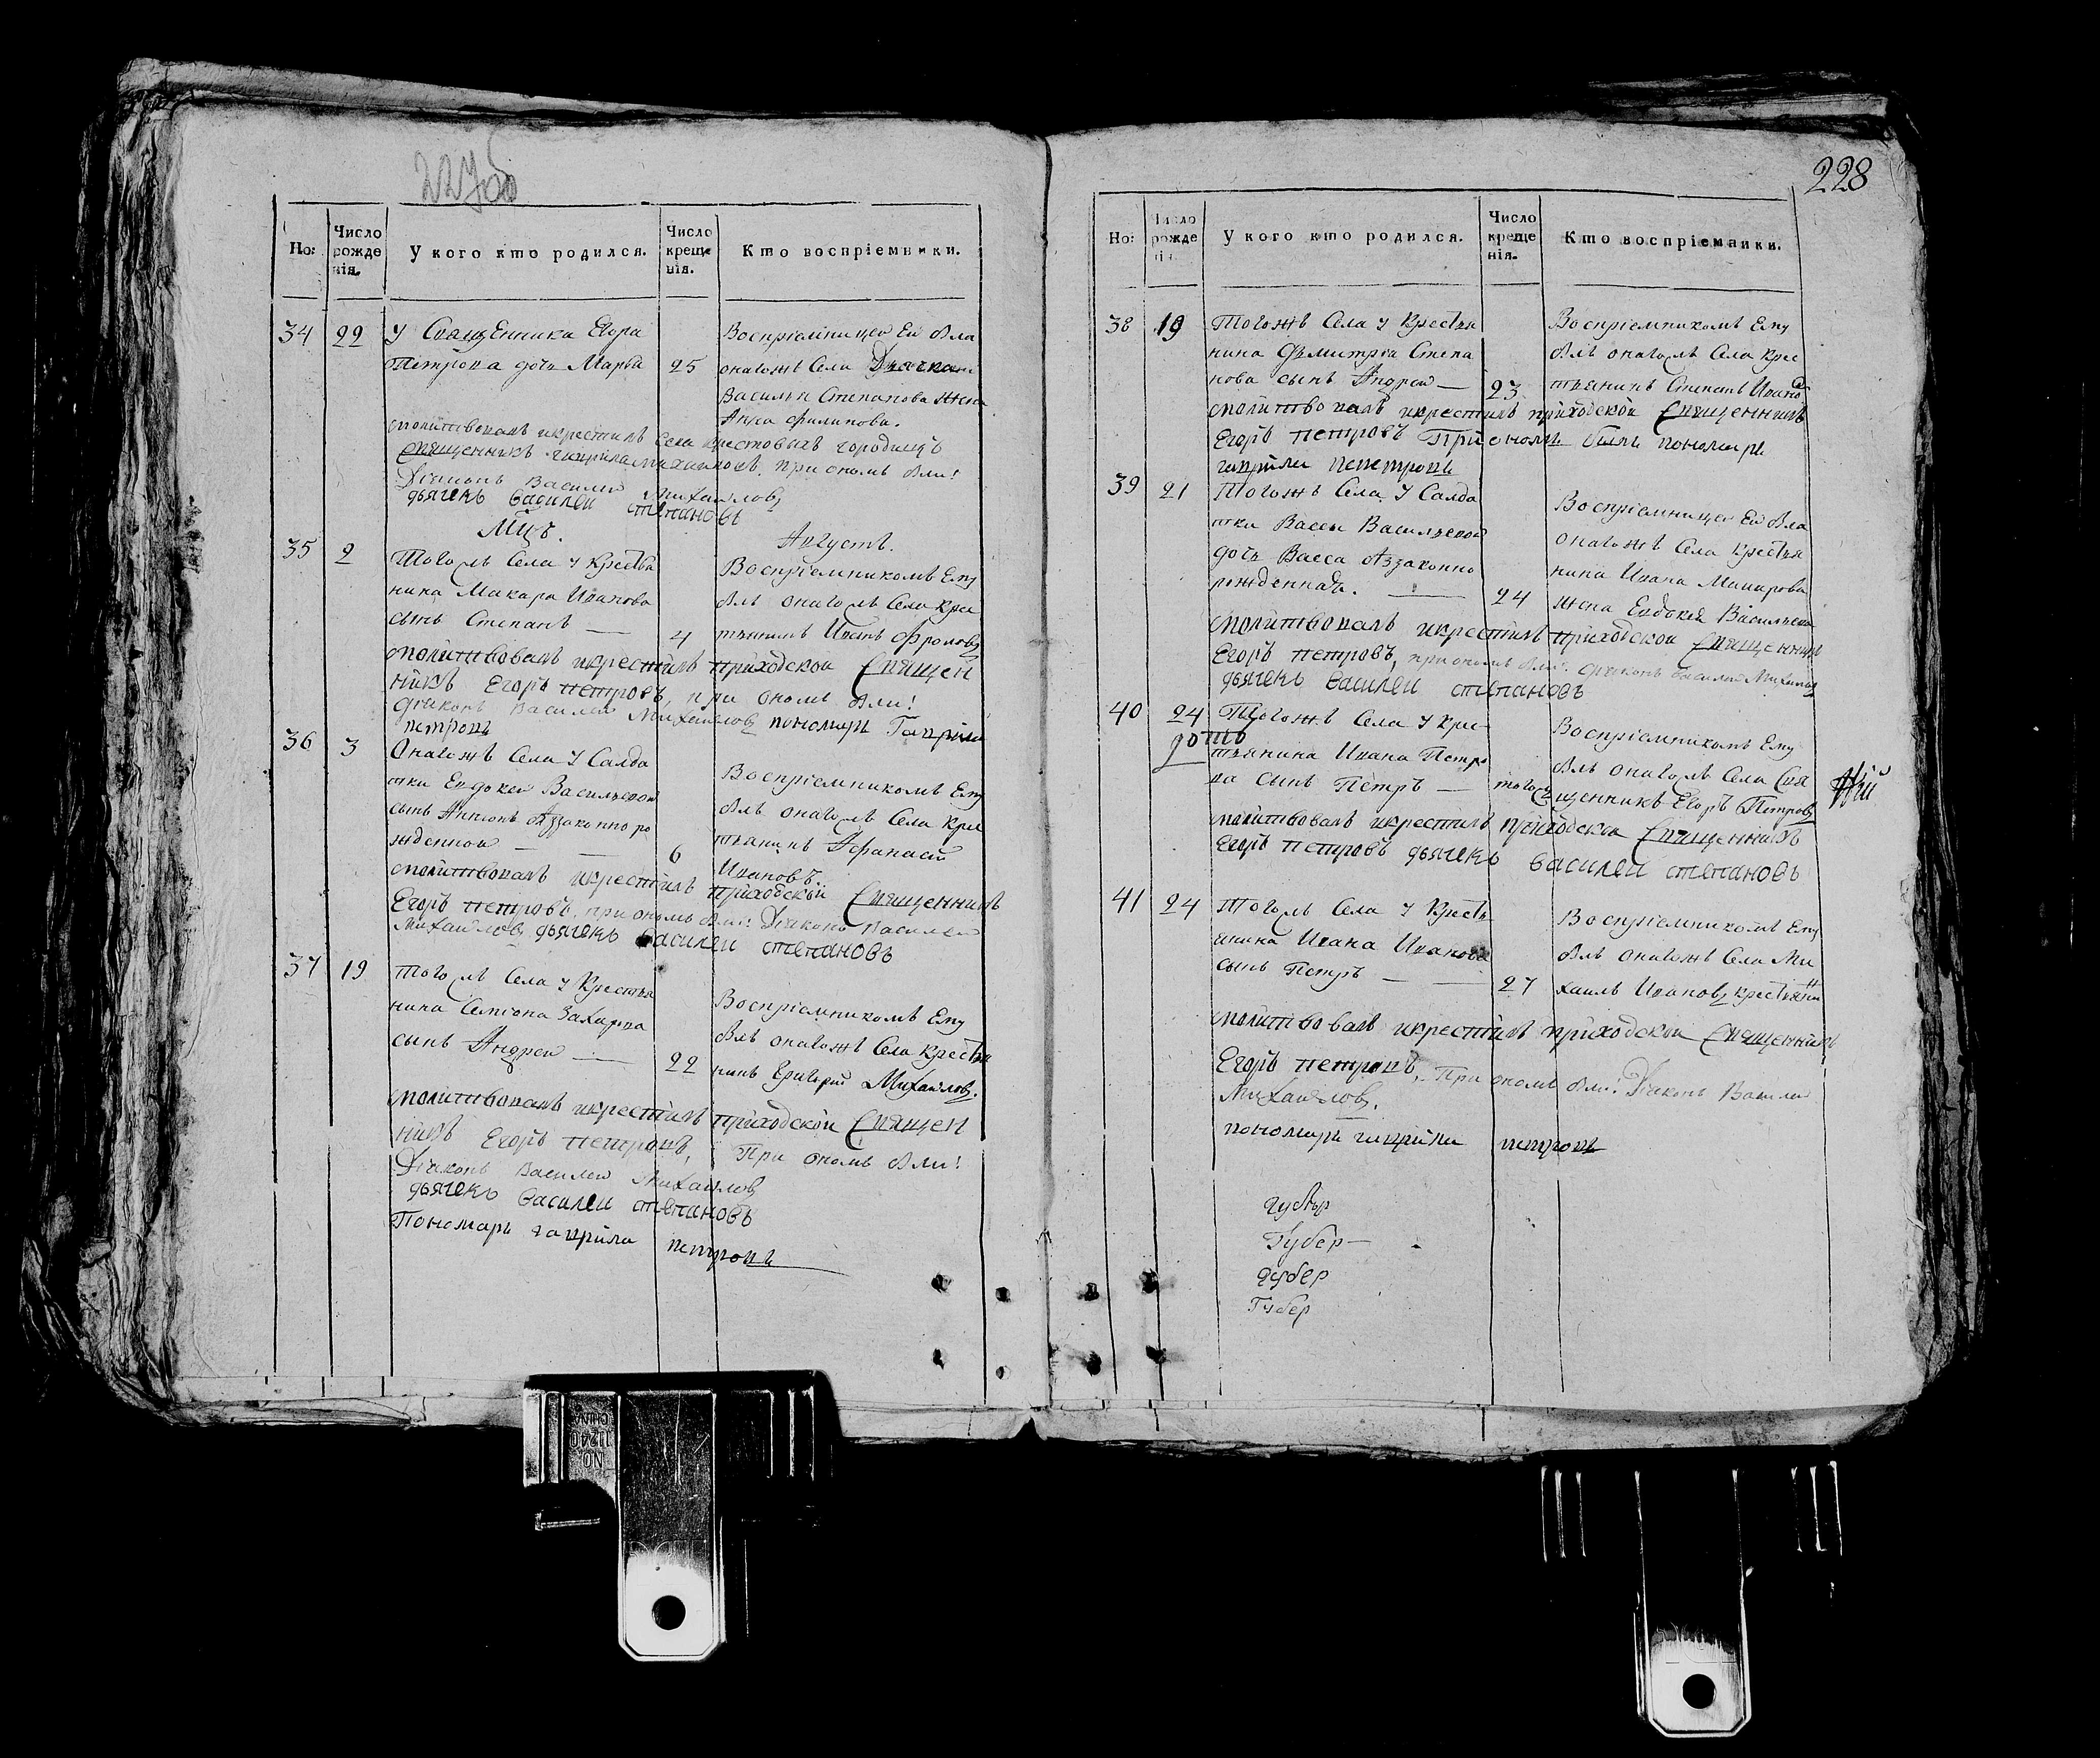 227об
Но:
Число рожденія.
У кого кто родился.
Число крещенія.
Кто воспріемники.
34
22
У Священника Егора
Петрова дочь Марѳа
25
Воспріемницею Ей бла
онагожъ Села Дьячка
Василья Степанова жена
Анна Филипова.
молитвовалъ икрестилъ Села крестовыхъ городищъ
Священникъ гаврила михаиловъ. при ономъ были!
Діяконъ Василеи Михаиловъ
дьячекъ василеи степановъ
Мцъ.
Августъ.
35
2
Тогожъ Села У Крестья
нина Макара Иванова
сынъ Степанъ —
4
Воспріемникомъ Ему
былъ онагожъ Села кре
тьянинъ Иванъ Фроловъ
молитвовалъ икрестилъ приходскои Священ
никъ Егоръ петровъ, при ономъ были!
діяконъ Василеи Михаиловъ пономарь Гаврила
петровъ
36
3
Онагожъ Села У Салда
тки Евдокеи Васильевои
сынъ Антонъ беззаконно ро
жденнои —
6
Воспріемникомъ Ему
былъ онагожъ Села кре
тьянинъ Афанасеи
Ивановъ
молитвовалъ икрестилъ приходскои Священникъ
Егоръ петровъ, при ономъ были! Діяконъ Василеи
Михаиловъ дьячекъ василеи степановъ
37
19
тогожъ Села у Крестья
нина Семіона Захарова
сынъ Андреи —
22
Воспріемникомъ Ему
былъ онагожъ Села Крестья
нинъ Григореи Михаиловъ.
молитвовалъ икрестилъ приходскои Священ
никъ Егоръ петровъ, При ономъ были!
Діяконъ Василеи Михаиловъ
дьячекъ василеи степановъ
Пономарь гаврила петровъ
228
Но:
Число рожденія.
У кого кто родился.
Число крещенія.
Кто воспріемники.
38
19
Тогожъ Села У Крестья
нина Дѣмитрея Степа
нова сынъ Андреи —
23
Воспріемникомъ Ему
былъ онагожъ Села Кре
тьянинъ Степанъ Ивано
молитвовалъ икрестилъ приходскои Священникъ
Егоръ петровъ При ономъ были пономарь
гаврила петровъ
39
21
Тогожъ Села У Салда
тки Вассы Васильевои
дочь Васса беззаконно
рожденная. —
24
Воспріемницею Ей бла
онагожъ Села Крестья
нина Ивана Макарова
жена Евдокея Васильева
молитвовалъ икрестилъ приходскои Священникъ
Егоръ петровъ, при ономъ были! діяконъ василеи Михаиловъ
дьячекъ василеи степановъ
40
24
Тогожъ Села У Кре
тьянина Ивана Петро
ва сынъ Петръ —
тогожъ
Воспріемникомъ Ему
былъ онагожъ Села Свя
щенникъ Егоръ Петровъ
молитвовалъ икрестилъ приходскои Священникъ
Егоръ петровъ дьячекъ василеи степановъ
41
24
Тогожъ Села У Кресть
янина Ивана Иванова
сынъ Петръ —
27
Воспріемникомъ Ему
былъ онагожъ Села Ми
хаилъ Ивановъ крестьяни
молитвовалъ икрестилъ приходскои Священникъ
Егоръ петровъ, При ономъ были! Діяконъ Василеи
Михаиловъ.
пономарь гаврила петровъ
губър
Губер—
губер
Губер